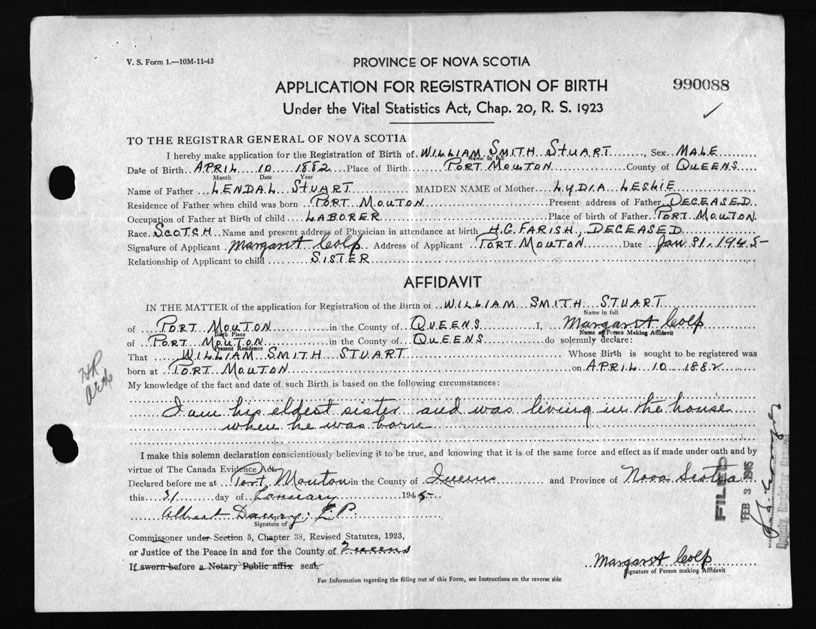 V. S. Form 1.—10M-11-43
PROVINCE OF NOVA SCOTIA
APPLICATION FOR REGISTRATION OF BIRTH
990088
Under the Vital Statistics Act, Chap. 20, R. S. 1923
TO THE REGISTRAR GENERAL OF NOVA SCOTIA
I hereby make application for the Registration of Birth of WILLIAM SMITH STUART Sex MALE
Name in full
Date of Birth APRIL 10 1882 Place of Birth PORT MOUTON County of QUEENS
Month Date Year
Name of Father LENDAL STUART MAIDEN NAME of Mother LYDIA LESLIE
Residence of Father when child was born PORT MOUTON Present address of Father DECEASED
Occupation of Father at Birth of child LABORER Place of birth of Father PORT MOUTON
Race SCOTCH Name and present address of Physician in attendance at birth H.G. FARISH, DECEASED
Signature of Applicant Margaret Colp Address of Applicant PORT MOUTON Date Jan 31, 1945
Relationship of Applicant to child SISTER
AFFIDAVIT
IN THE MATTER of the application for Registration of the Birth of WILLIAM SMITH STUART
Name in full
of PORT MOUTON in the County of QUEENS I, Margaret Colp
Birth Place Name of Person Making Affidavit
of PORT MOUTON in the County of QUEENS do solemnly declare:
Present Residence
That WILLIAM SMITH STUART Whose Birth is sought to be registered was
born at PORT MOUTON on APRIL 10 1882
My knowledge of the fact and date of such Birth is based on the following circumstances:
I am his eldest sister and was living in the house
when he was born
I make this solemn declaration conscientiously believing it to be true, and knowing that it is of the same force and effect as if made under oath and by
virtue of The Canada Evidence Act.
Declared before me at Port Mouton in the County of Queens and Province of Nova Scotia
this 31 day of January 1945
Albert Daury, J.P.
Signature of
Commissioner under Section 5, Chapter 38, Revised Statutes, 1923,
or Justice of the Peace in and for the County of Queens
If sworn before a Notary Public affix seal.
Margaret Colp
Signature of Person making Affidavit
For Information regarding the filling out of this Form, see Instructions on the reverse side
FILED
FEB 3 1945